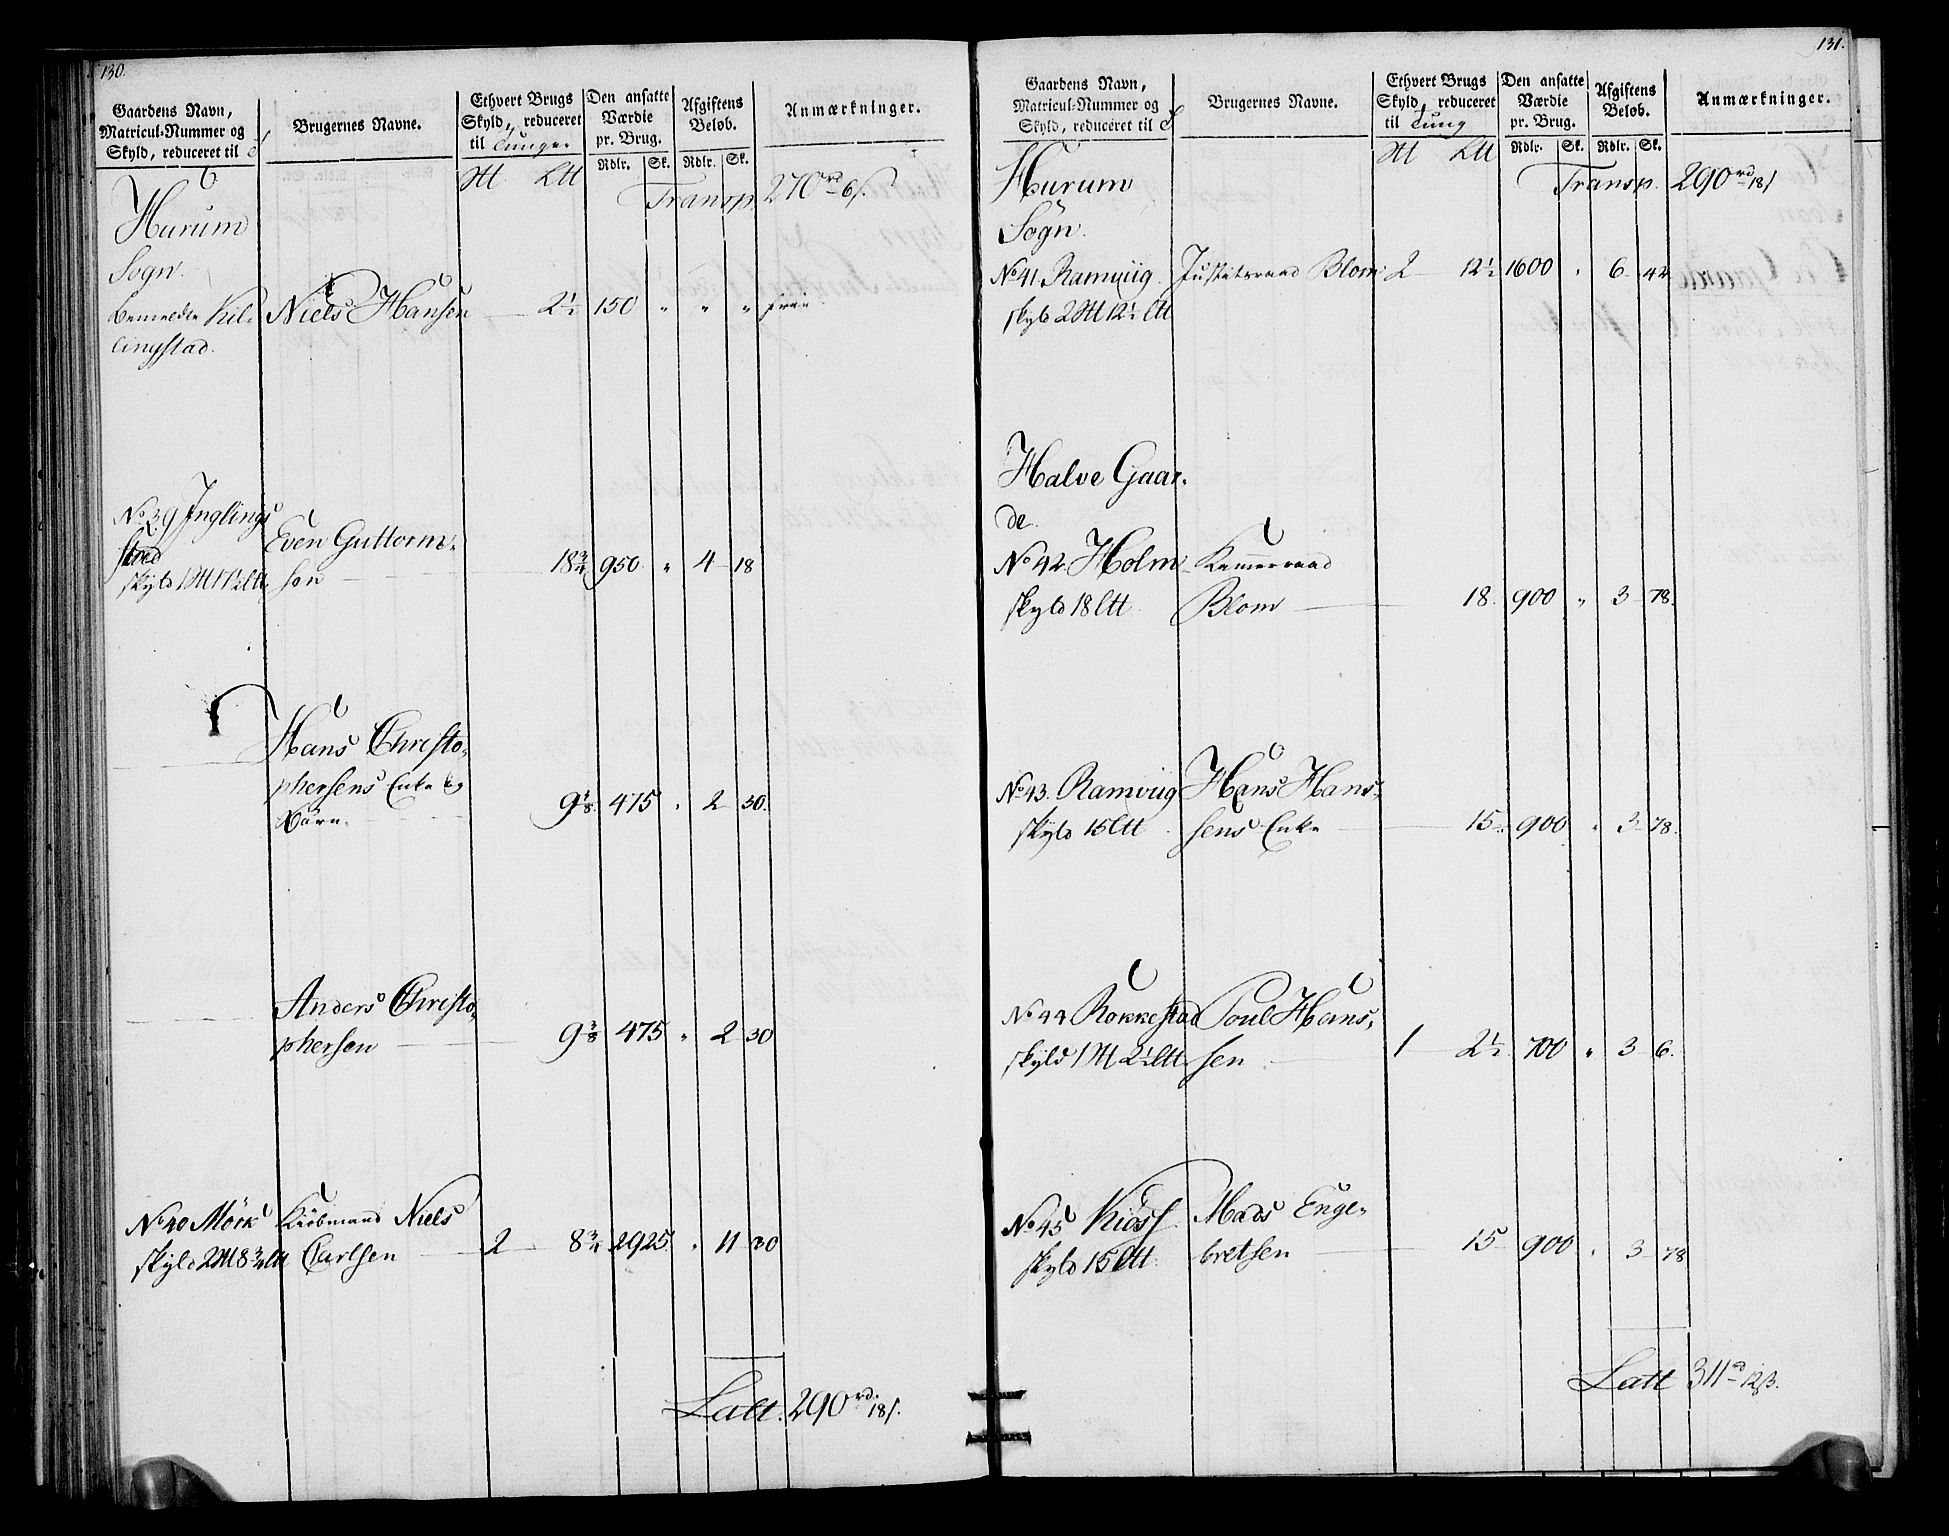 130.
Gaardens Navn,
Matricul-Nummer og
Skyld, reduceret til
Brugernes Navne.
Ethvert Brugs
Skyld, reduceret
til Tunge
Den ansatte
Værdie
pr. Brug.
Afgiftens
Beløb.
Anmærkninger.
Rdlr. Sk. Rdlr. Sk.
Transp. 270 rd 6 s.
Hurum
Sogn.
bemeldte Kil-
lingstad.
Niels Hansen 2½ 150 " " " frie
No 39 Inglings
stad
skyld 1 1½ 
Even Guttorm-
sen 18¾ 950 " 4 18
Hans Christo-
phersens Enke og
Börn 9⅜ 475 " 2 30.
Anders Christo-
phersen 9⅜ 475 " 2 30
No 40 Mörk
skyld 2 8¾
Kiöbmand Niels
Carlsen 2 8¾ 2925 " 11 30
Latt. 290 rd 18 s.
131.
Gaardens Navn,
Matricul-Nummer og
Skyld, reduceret til
Brugernes Navne.
Ethvert Brugs
Skyld, reduceret
til Tung
Den ansatte
Værdie
pr. Brug.
Afgiftens
Beløb.
Anmærkninger.
Rdlr. Sk. Rdlr. Sk.
Transp. 290 rd 18 s
Hurum
Sogn.
No 41. Ramviig
skyld 2 12½
Justitsraad Blom 2 12½ 1600 " 6 42
Halve Gaar-
de.
No 42. Holm
skyld 18
Kammerraad
Blom 18. 900 " 3 78.
No 43. Ramviig
skyld 15
Hans Hans-
sens Enke 15 900 " 3 78.
No 44 Rokkestad
skyld 1 2½
Poul Hans-
sen 1 2½ 700 " 3 6.
No 45 Kiöss
skyld 15
Mads Enge-
bretsen 15 900 " 3 78
Latt 311 rd 12 ß.